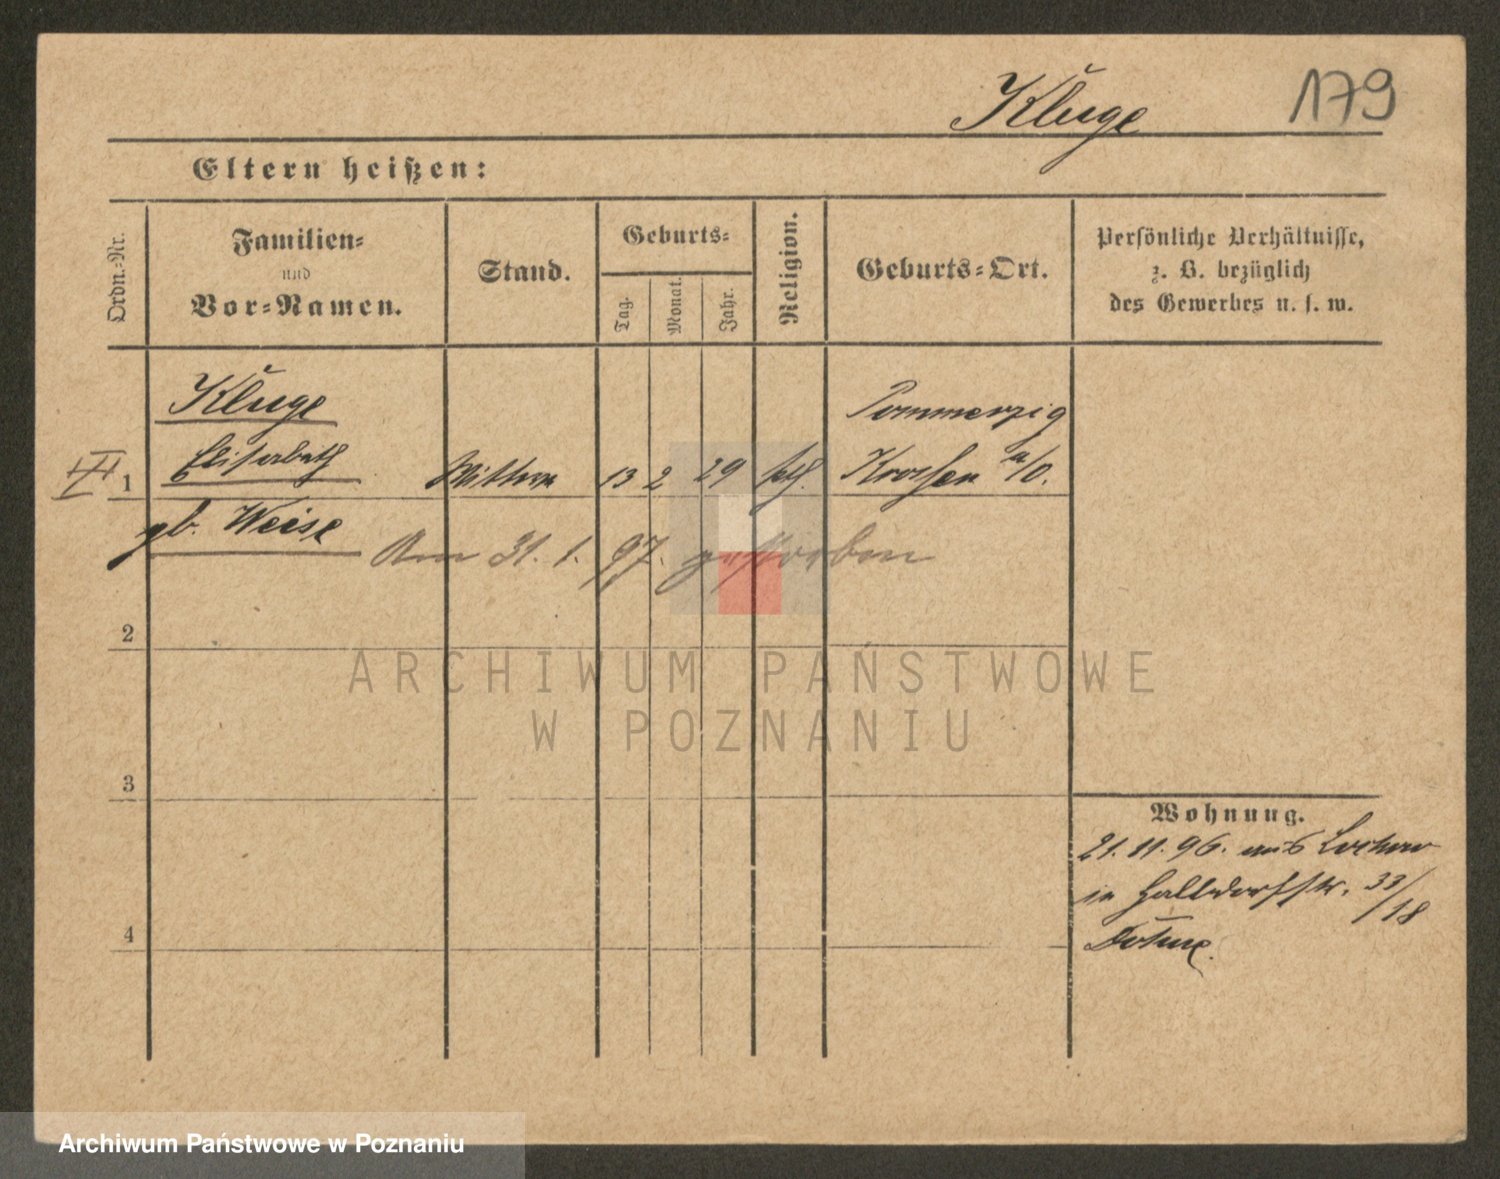 Kluge
179
Eltern heißen:
Ordn.-Nr.
Familien-
und
Vor-Namen.
Stand.
Geburts-
Tag.
Monat.
Jahr.
Religion.
Geburts-Ort.
Persönliche Verhältnisse,
z. B. bezüglich
des Gewerbes u. s. w.
Kluge
Elisabeth
gb. Weise
1
Wittwe
13 2 29
Pommerzig
Krossen a/O.
Am 31. 1. 97. gestorben
2
3
4
Wohnung.
21. 11. 96. aus
in Halldorfstr. 33/18
ARCHIWUM PAŃSTWOWE
W POZNANIU
Archiwum Państwowe w Poznaniu